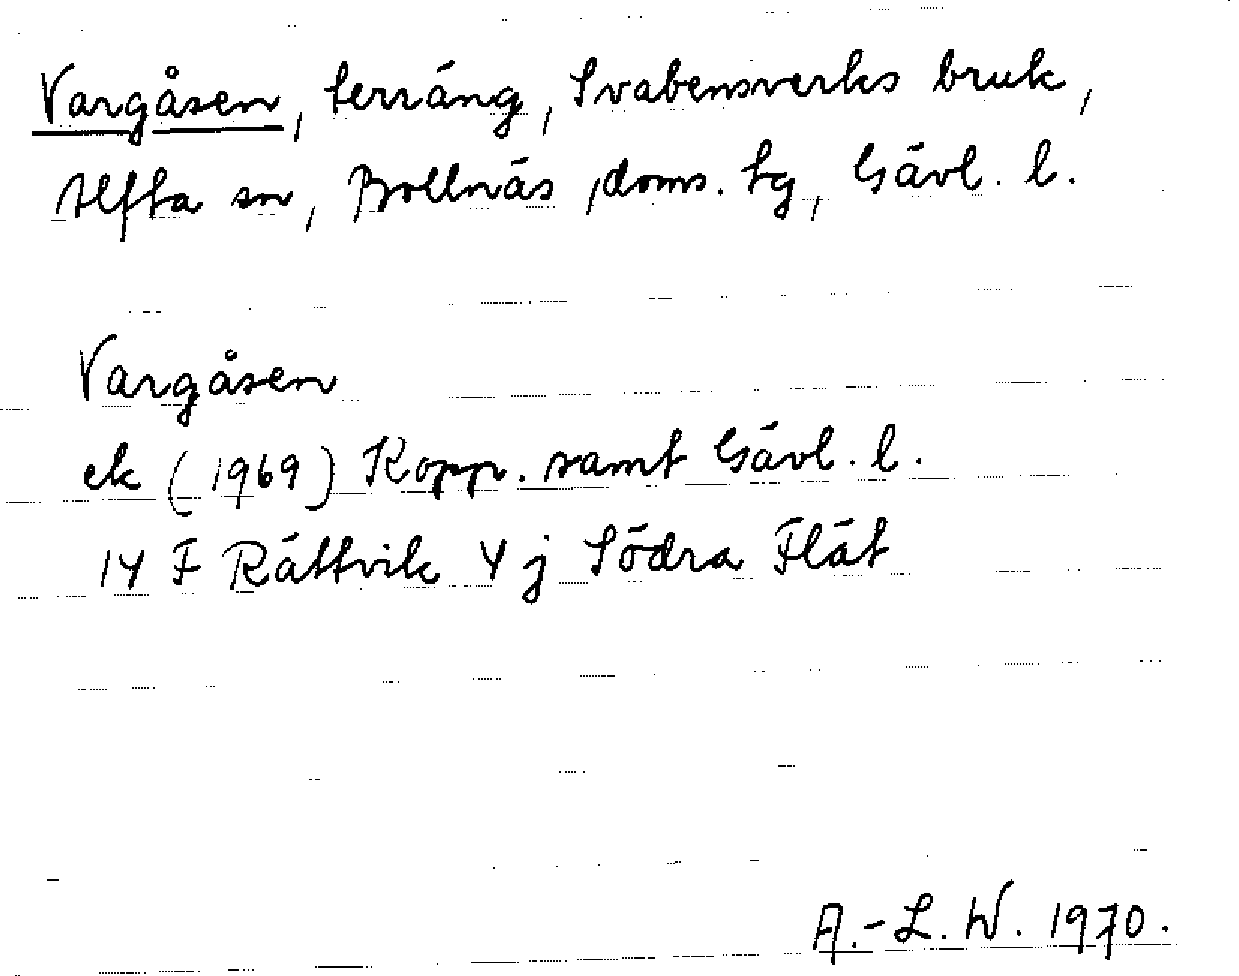 Vargåsen, terräng, Svabensverks bruk,
Alfta sn, Bollnäs doms. tg, Gävl. l.
Vargåsen
ek (1969) Kopp. samt Gävl. l.
14 F Rättvik 4 j Södra Flät
A.-L. W. 1970.